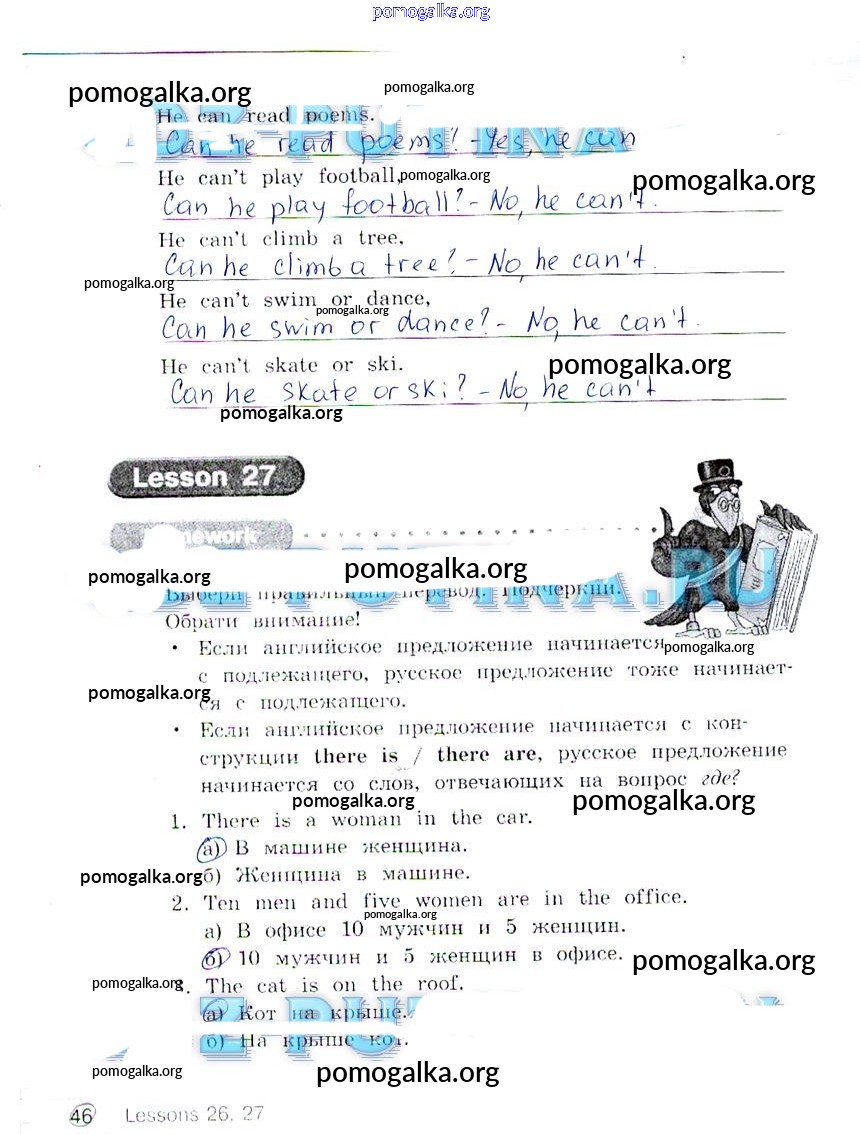 pomogalka.org
pomogalka.org
pomogalka.org
He can read poems.
Can he read poems? - Yes, he can
He can't play football, pomogalka.org
pomogalka.org
Can he play football? - No, he can't.
He can't climb a tree,
Can he climb a tree? - No, he can't.
pomogalka.org
He can't swim or dance,
pomogalka.org
Can he swim or dance? - No, he can't.
He can't skate or ski.
pomogalka.org
Can he skate or ski? - No, he can't
pomogalka.org
Lesson 27
pomogalka.org
pomogalka.org
Выбери правильный перевод. Подчеркни.
Обрати внимание!
• Если английское предложение начинается
pomogalka.org
с подлежащего, русское предложение тоже начинает-
pomogalka.org
ся с подлежащего.
• Если английское предложение начинается с кон-
струкции there is / there are, русское предложение
начинается со слов, отвечающих на вопрос где?
pomogalka.org
pomogalka.org
1. There is a woman in the car.
а) В машине женщина.
pomogalka.org
б) Женщина в машине.
2. Ten men and five women are in the office.
pomogalka.org
а) В офисе 10 мужчин и 5 женщин.
б) 10 мужчин и 5 женщин в офисе.
pomogalka.org
pomogalka.org
3. The cat is on the roof.
а) Кот на крыше.
б) На крыше кот.
pomogalka.org
pomogalka.org
46 Lessons 26, 27